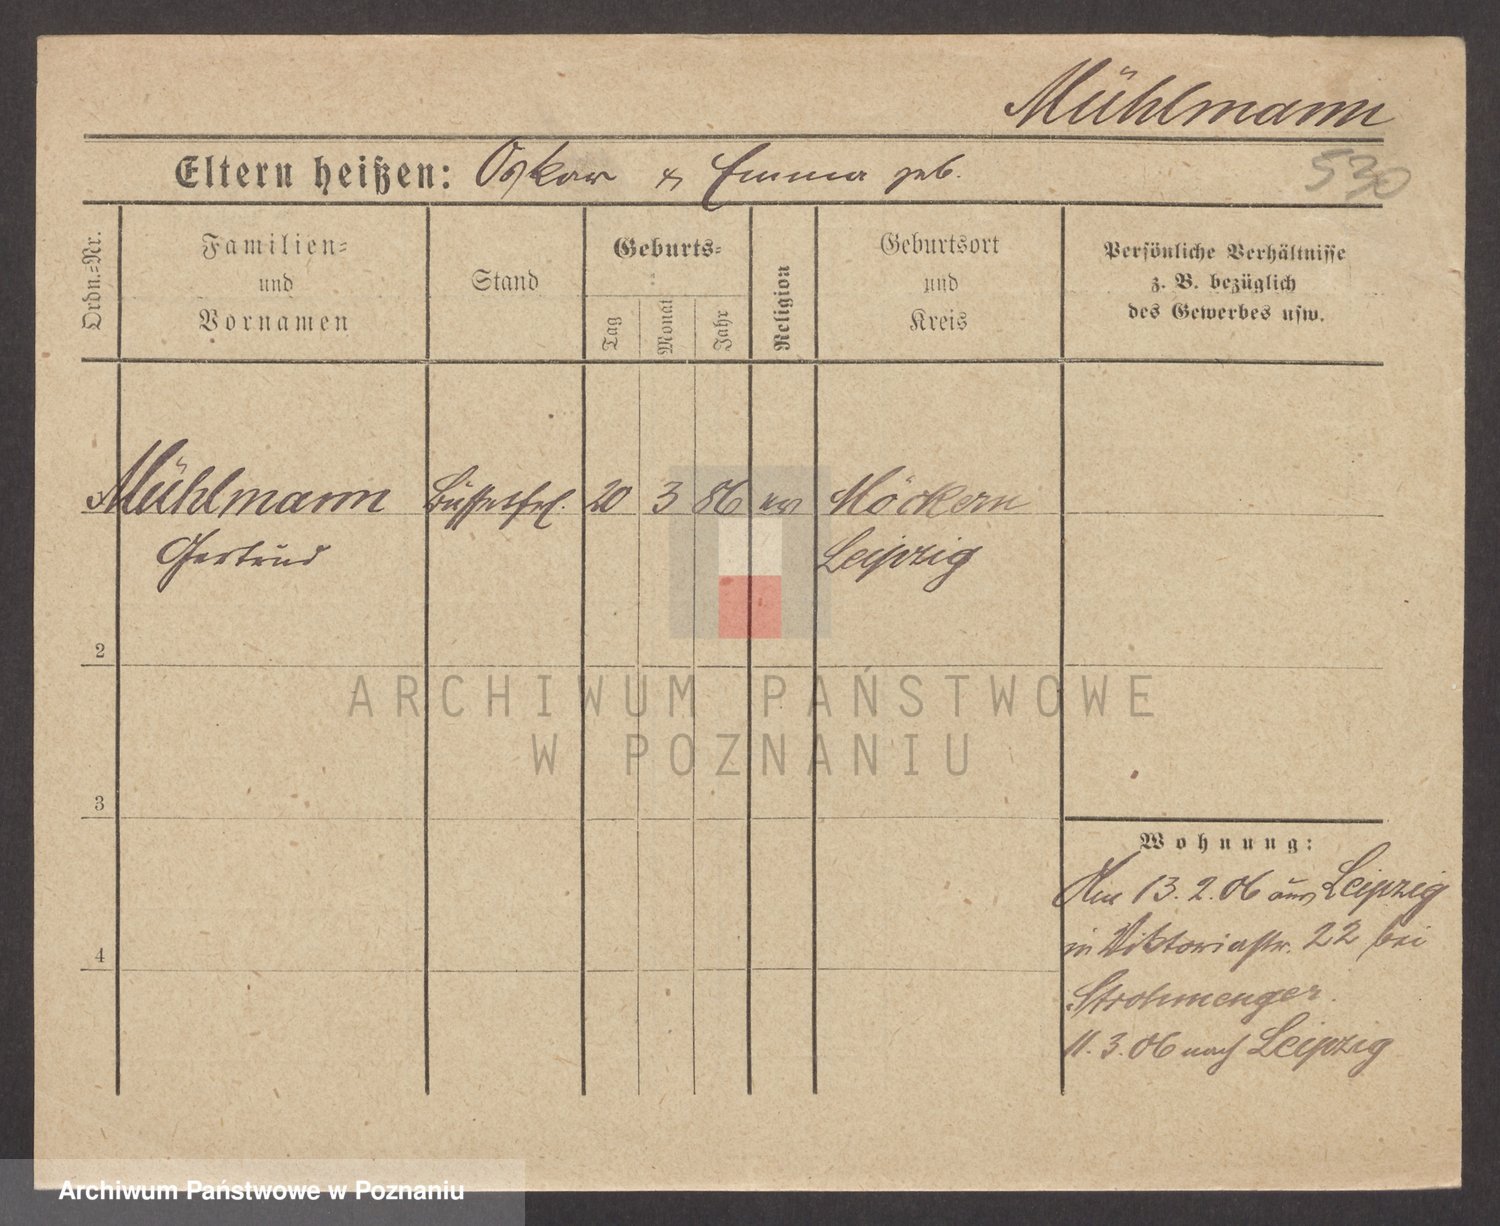 Mühlmann
Eltern heißen: Oskar & Emma geb.
530
Ordn.=Nr.
Familien=
und
Vornamen
Stand
Geburts=
Tag
Monat
Jahr
Religion
Geburtsort
und
Kreis
Persönliche Verhältnisse
z. B. bezüglich
des Gewerbes usw.
Mühlmann Büffetfrl. 20 3 86 ev Möckern
Gertrud Leipzig
2
ARCHIWUM PAŃSTWOWE
W POZNANIU
3
Wohnung:
Am 13.2.06 aus Leipzig
in Viktoriastr. 22 bei
4
Strohmenger.
11.3.06 nach Leipzig
Archiwum Państwowe w Poznaniu